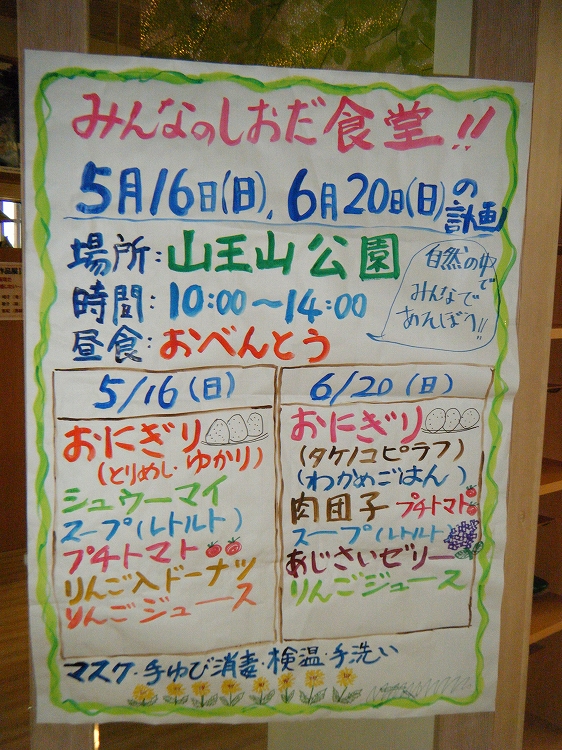 みんなのしおだ食堂!!
5月16日(日)、6月20日(日)の計画
場所:山王山公園
時間:10:00〜14:00
昼食:おべんとう
自然の中で
みんなで
あそぼう!!
5/16(日)
おにぎり
(とりめし・ゆかり)
シュウーマイ
スープ(レトルト)
プチトマト
りんご入ドーナツ
りんごジュース
6/20(日)
おにぎり
(タケノコピラフ)
(わかめごはん)
肉団子 プチトマト
スープ(レトルト)
あじさいゼリー
りんごジュース
マスク・手ゆび消毒・検温・手洗い